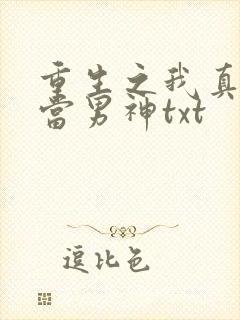 重生之我真
当男神txt
逗比色